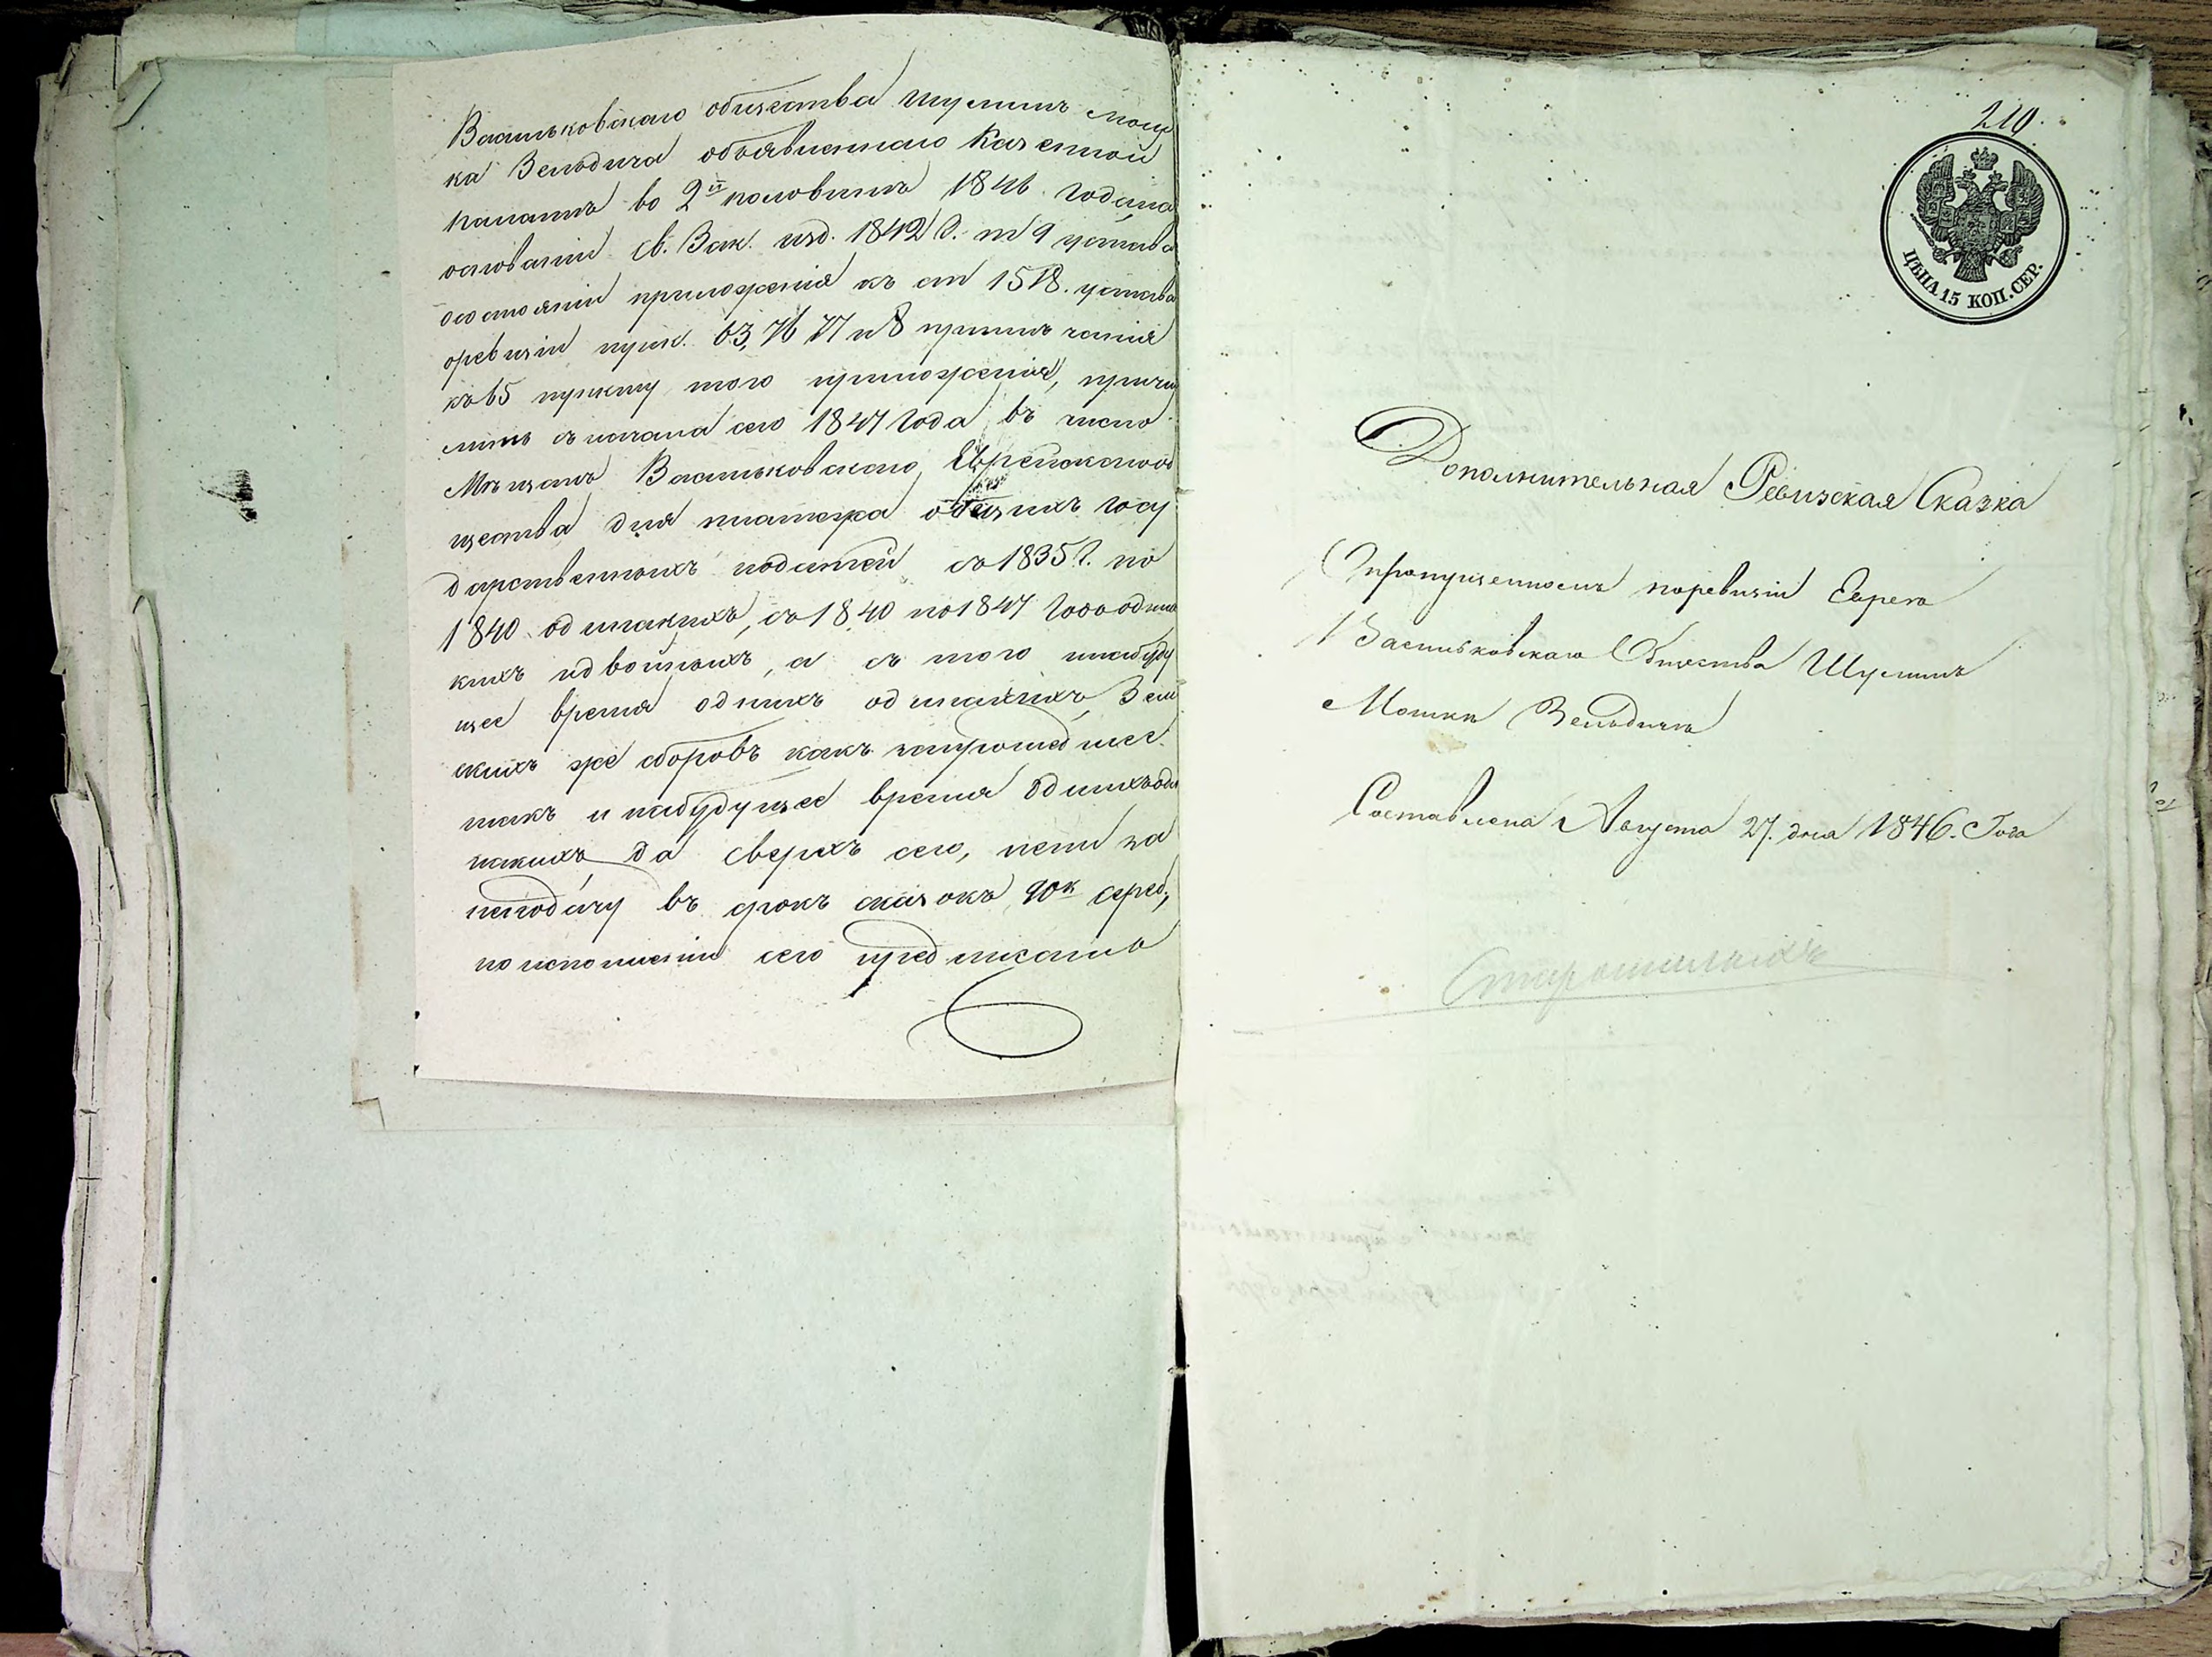 Васильковскаго общества Шулимъ Мош
ка Зельдича объявленнаго Казенной
палатѣ во 2й половинѣ 1846 года, на
основаніи Св. Зак. изд. 1842 г. т 9 устава
осостояніи приложенія къ ст 1518. устава
оревизіи пунк. 63, 76 77 и 8 примѣчанія
къ 65 пункту того приложенія, причи
лить съ начала сего 1847 года въ число
Мѣщанъ Васильковскаго Еврейскаго об
щества для платежа общихъ госу
дарственныхъ податей съ 1835 г. по
1840 одинакихъ, съ 1840 по 1847 годъ одина
кихъ и двойныхъ, а съ того и на буду
щее время однихъ одинакихъ, Зем
скихъ же сборовъ какъ за прошедшее
такъ и на будущее время однихъ оди
накихъ да сверхъ сего, пени за
неподачу въ срокъ сказокъ 90к сереб,
по исполненіи сего предписанію
210.
ЦѢНА 15 КОП. СЕР.
Дополнительная Ревизская Сказка
О пропущенномъ по ревизіи Евреѣ
Васильковскаго Общества Шулимѣ
Мошкѣ Зельдичѣ
Составлена Августа 27. дня 1846. Года